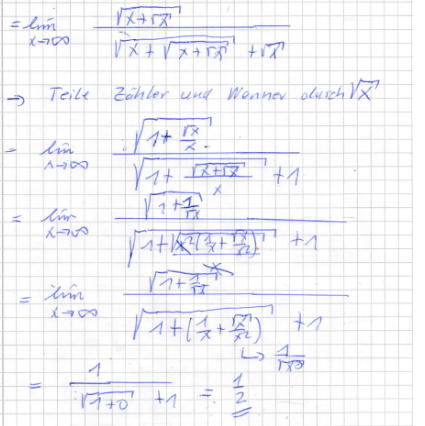 = lim x→∞ √(x+√x) / (√(x+√(x+√x)) + √x)
→ Teile Zähler und Nenner durch √x
= lim x→∞ √(1+√x/x) / (√(1+√(x+√x)/x) + 1)
= lim x→∞ √(1+1/√x) / (√(1+√(x²(1/x+√x/x²))/x) + 1)
= lim x→∞ √(1+1/√x) / (√(1+(1/x+√x/x²)) + 1)
↳ 1/√x³
= 1/(√(1+0) + 1) = 1/2